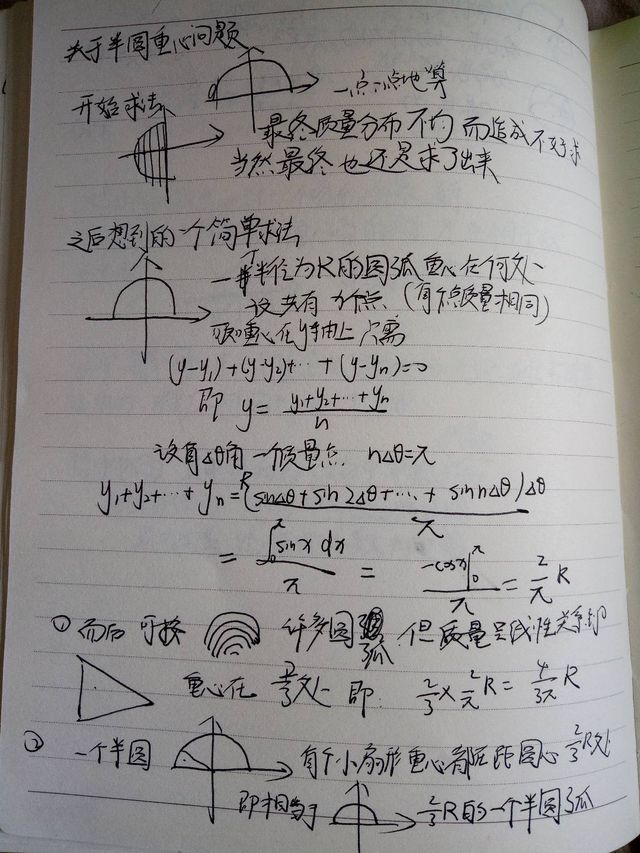 关于半圆重心问题
一点一点地算
开始求法
最终质量分布不均而造成不好求
当然最终也还是求了出来
之后想到的一个简单求法
一半径为R的圆弧重心在何处
设共有n个点(每个点质量相同)
重心在y轴上只需
(y-y₁)+(y-y₂)+…+(y-yₙ)=0
即 y= (y₁+y₂+…+yₙ)/n
设每Δθ角一个质量点 nΔθ=π
y₁+y₂+…+yₙ= R(sinΔθ+sin2Δθ+…+sin nΔθ)Δθ/π
= ∫₀^π sinx dx/π = -cosx|₀^π/π = 2/π R
① 而后可按 许多圆弧 但质量呈线性关系即
重心在 2/3处 即: 2/3 × 2/π R = 4/3π R
② 一个半圆 每个小扇形重心都距圆心 2/3 R处
即相当于 2/3 R的一个半圆弧